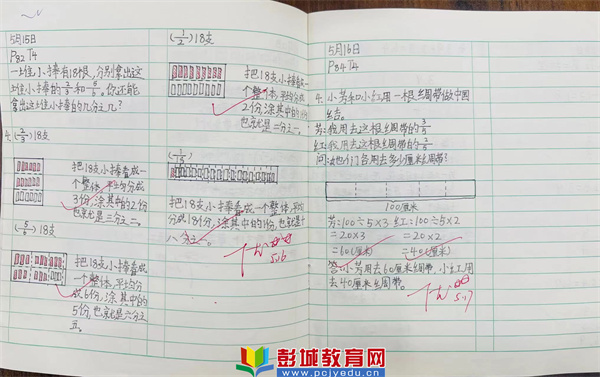 5月15日
P82 T4
一堆小棒有18根,分别拿出这
堆小棒的2/3和5/6。你还能
拿出这堆小棒的几分之几?
4.(2/3)18支
把18支小棒看成
一个整体,平均分成
3份,涂其中的2份
也就是三分之二。
(5/6)18支
把18支小棒看成
一个整体,平均分
成6份,涂其中的
5份,也就是六分之
五。
(1/2)18支
把18支小棒看成一
个整体,平均分成
2份,涂其中的1份
也就是二分之一。
把18支小棒看成一个整体,平均
分成18份,涂其中的1份,也就是十
八分之一。
5.16
5月16日
P84 T4
4.小芳和小红用一根丝周带做中国
结。
芳:我用去这根丝周带的3/5
红:我用去这根丝周带的2/5
问:他们各用去多少厘米丝周带?
100厘米
芳:100÷5×3 红:100÷5×2
=20×3 =20×2
=60(厘米) =40(厘米)
答:小芳用去60厘米丝周带,小红用
去40厘米丝周带。
5.17
彭城教育网
www.pcjyedu.cn